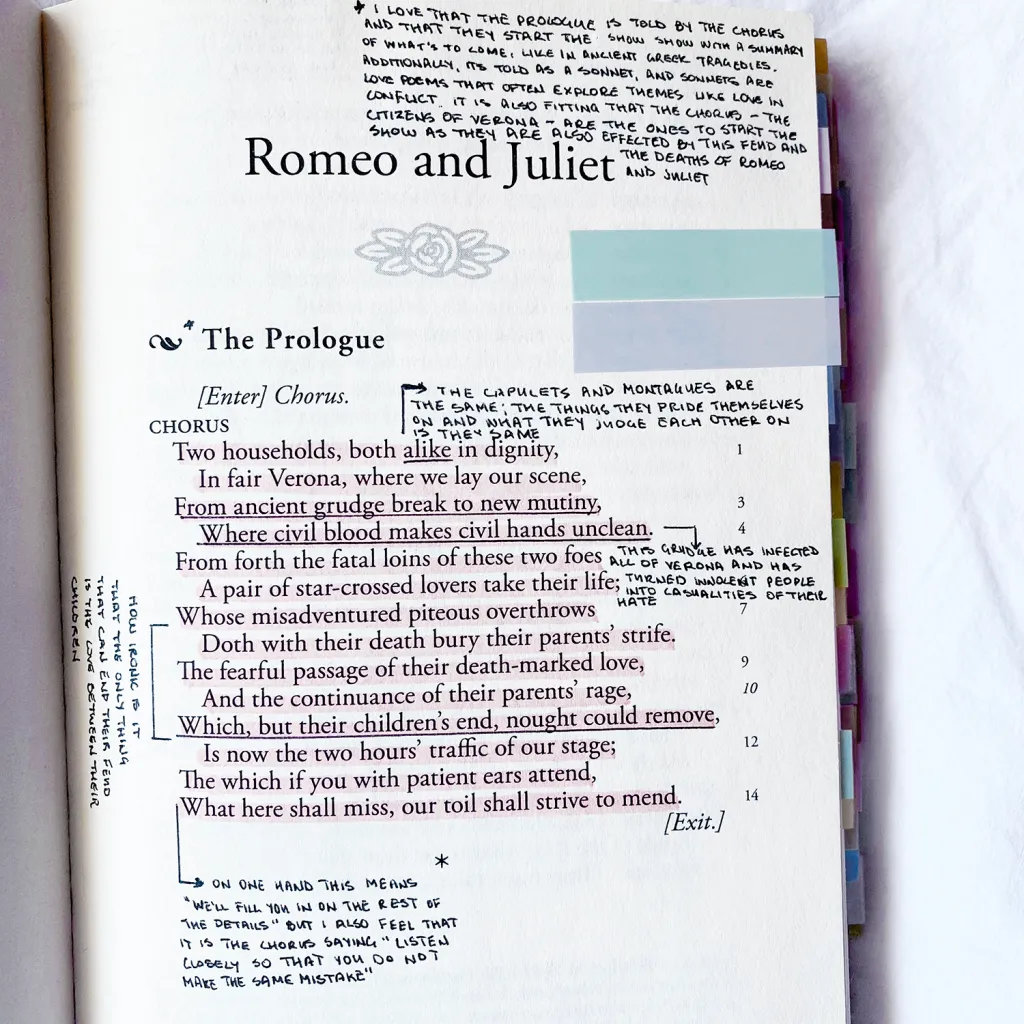 * I LOVE THAT THE PROLOGUE IS TOLD BY THE CHORUS
AND THAT THEY START THE SHOW SHOW WITH A SUMMARY
OF WHAT'S TO COME, LIKE IN ANCIENT GREEK TRAGEDIES.
ADDITIONALLY, ITS TOLD AS A SONNET, AND SONNETS ARE
LOVE POEMS THAT OFTEN EXPLORE THEMES LIKE LOVE IN
CONFLICT. IT IS ALSO FITTING THAT THE CHORUS - THE
CITIZENS OF VERONA - ARE THE ONES TO START THE
SHOW AS THEY ARE ALSO EFFECTED BY THIS FEUD AND
THE DEATHS OF ROMEO
AND JULIET
Romeo and Juliet
* The Prologue
[Enter] Chorus.
THE CAPULETS AND MONTAGUES ARE
THE SAME; THE THINGS THEY PRIDE THEMSELVES
ON AND WHAT THEY JUDGE EACH OTHER ON
IS THEY SAME
CHORUS
Two households, both alike in dignity, 1
In fair Verona, where we lay our scene,
From ancient grudge break to new mutiny, 3
Where civil blood makes civil hands unclean. 4
THIS GRUDGE HAS INFECTED
ALL OF VERONA AND HAS
TURNED INNOCENT PEOPLE
INTO CASUALITIES OF THEIR
HATE
From forth the fatal loins of these two foes
A pair of star-crossed lovers take their life;
Whose misadventured piteous overthrows 7
Doth with their death bury their parents' strife.
The fearful passage of their death-marked love, 9
And the continuance of their parents' rage, 10
Which, but their children's end, nought could remove,
Is now the two hours' traffic of our stage; 12
The which if you with patient ears attend,
What here shall miss, our toil shall strive to mend. 14
[Exit.]
HOW IRONIC IS IT
THAT THE ONLY THING
THAT CAN END THEIR FEUD
IS THE LOVE BETWEEN THEIR
CHILDREN
*
ON ONE HAND THIS MEANS
"WE'LL FILL YOU IN ON THE REST OF
THE DETAILS" BUT I ALSO FEEL THAT
IT IS THE CHORUS SAYING "LISTEN
CLOSELY SO THAT YOU DO NOT
MAKE THE SAME MISTAKE"